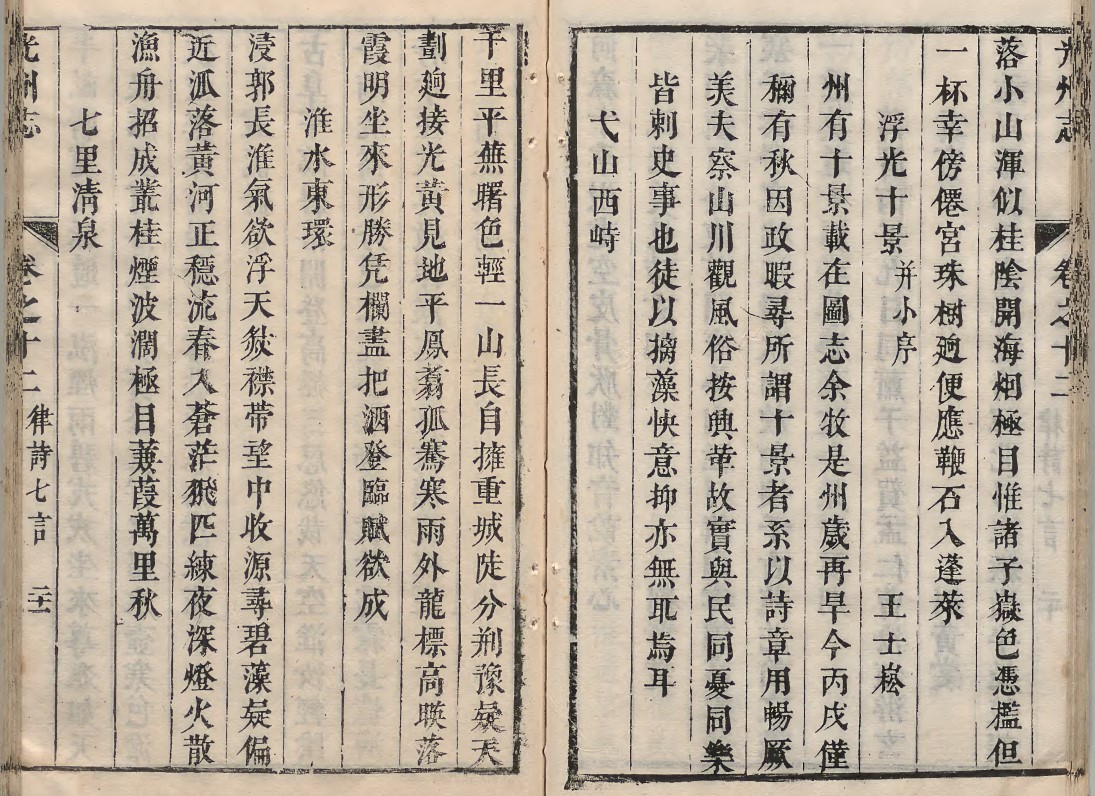 光州志 卷之十二
落小山渾似桂陰開海烟極目惟諸子嶽色憑檻但
一杯幸傍僊宮珠樹廻便應鞭石入蓬萊
浮光十景 并小序 王士崧
州有十景載在圖志余牧是州歲再旱今丙戌僅
穪有秋因政暇尋所謂十景者系以詩章用暢厥
美夫察山川觀風俗按興革故實與民同憂同樂
皆刺史事也徒以摛藻快意抑亦無耻焉耳
弋山西峙
千里平蕪曙色輕一山長自擁重城陡分荆豫疑天
劃廻接光黃見地平鳳翥孤騫寒雨外龍標高映落
霞明坐來形勝凭欄盡把酒登臨賦欲成
淮水東環
浸郭長淮氣欲浮天然襟帶望中收源尋碧藻疑偏
近派落黃河正穩流春入蒼茫飛匹練夜深燈火散
漁舟招成叢桂煙波濶極目蒹葭萬里秋
七里清泉
光州志 卷之十二 律詩七言 二十一